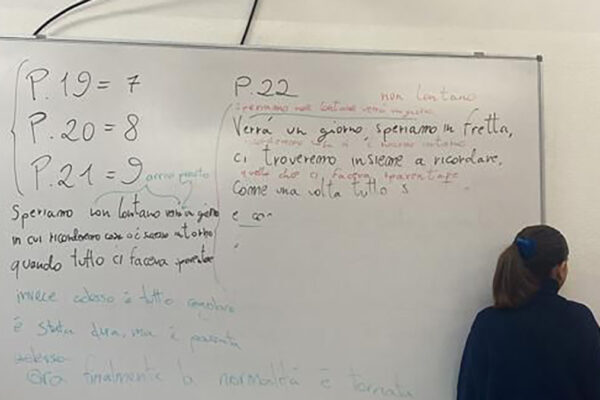 P.19 = 7
P.20 = 8
P.21 = 9
arriva presto
Speriamo non lontano verrà un giorno
in cui ricorderemo
quando tutto ci faceva
invece adesso è tutto
è stata dura, ma è passata
adesso
Ora finalmente la normalità è tornata
P.22
non lontano
speriamo non lontano verrà un giorno
Verrà un giorno, speriamo in fretta,
ci troveremo insieme a ricordare,
quello che ci faceva
Come una volta tutto s
e co